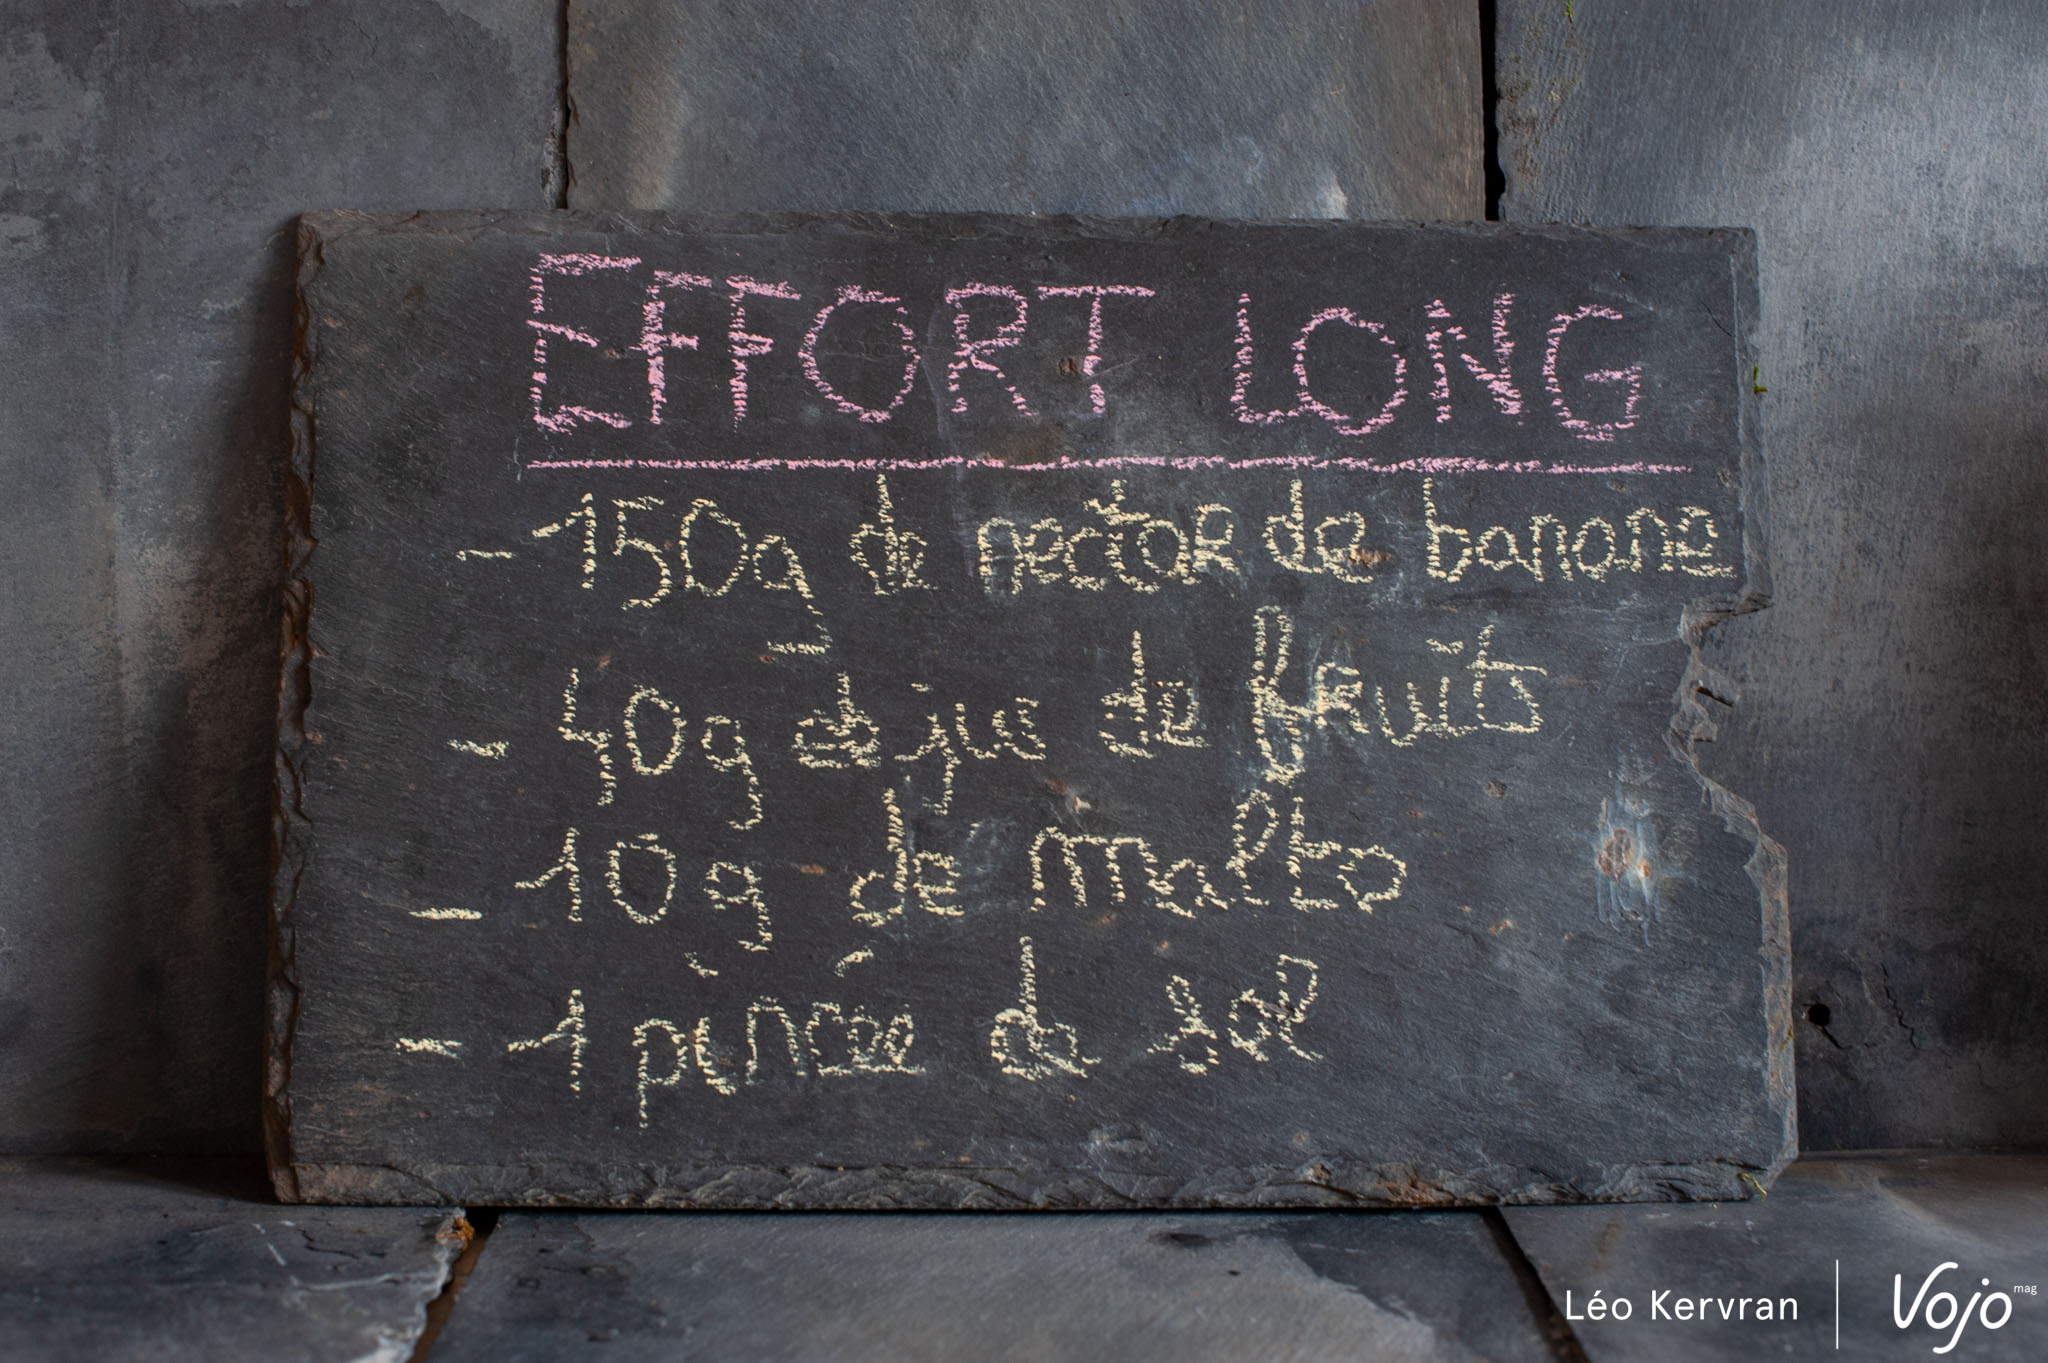 EFFORT LONG
- 150g de nectar de banane
- 40g de jus de fruits
- 10g de malto
- 1 pincée de sel
Léo Kervran | Vojo mag